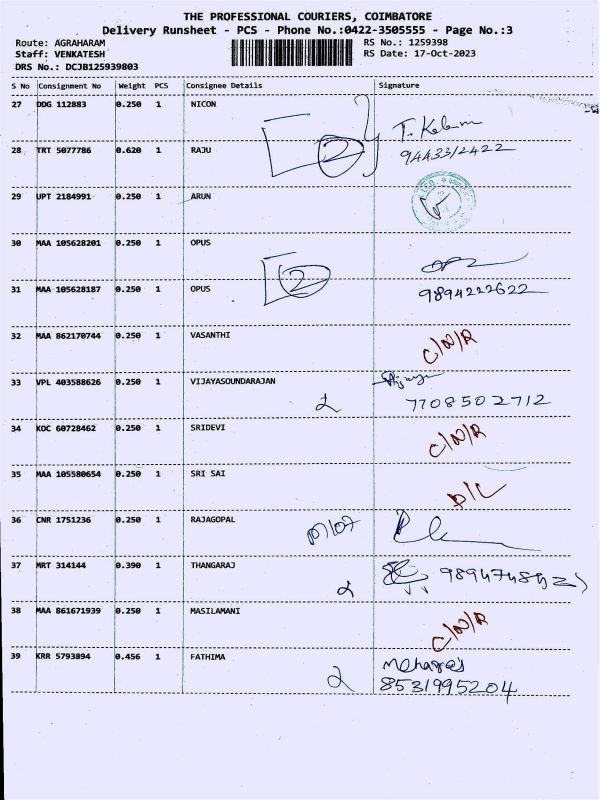 THE PROFESSIONAL COURIERS, COIMBATORE
Delivery Runsheet - PCS - Phone No.:0422-3505555 - Page No.:3
Route: AGRAHARAM RS No.: 1259398
Staff: VENKATESH RS Date: 17-Oct-2023
DRS No.: DCJB125939803
S No Consignment No Weight PCS Consignee Details Signature
27 DDG 112883 0.250 1 NICON
28 TRT 5077786 0.620 1 RAJU 2 9443312422
29 UPT 2184991 0.250 1 ARUN
30 MAA 105628201 0.250 1 OPUS
31 MAA 105628187 0.250 1 OPUS 2 9894222622
32 MAA 862170744 0.250 1 VASANTHI C/N/R
33 VPL 403588626 0.250 1 VIJAYASOUNDARAJAN 2 7708502712
34 KOC 60728462 0.250 1 SRIDEVI C/N/R
35 MAA 105580654 0.250 1 SRI SAI D/L
36 CNR 1751236 0.250 1 RAJAGOPAL
37 MRT 314144 0.390 1 THANGARAJ
38 MAA 861671939 0.250 1 MASILAMANI C/N/R
39 KRR 5793894 0.456 1 FATHIMA 2 8531995204